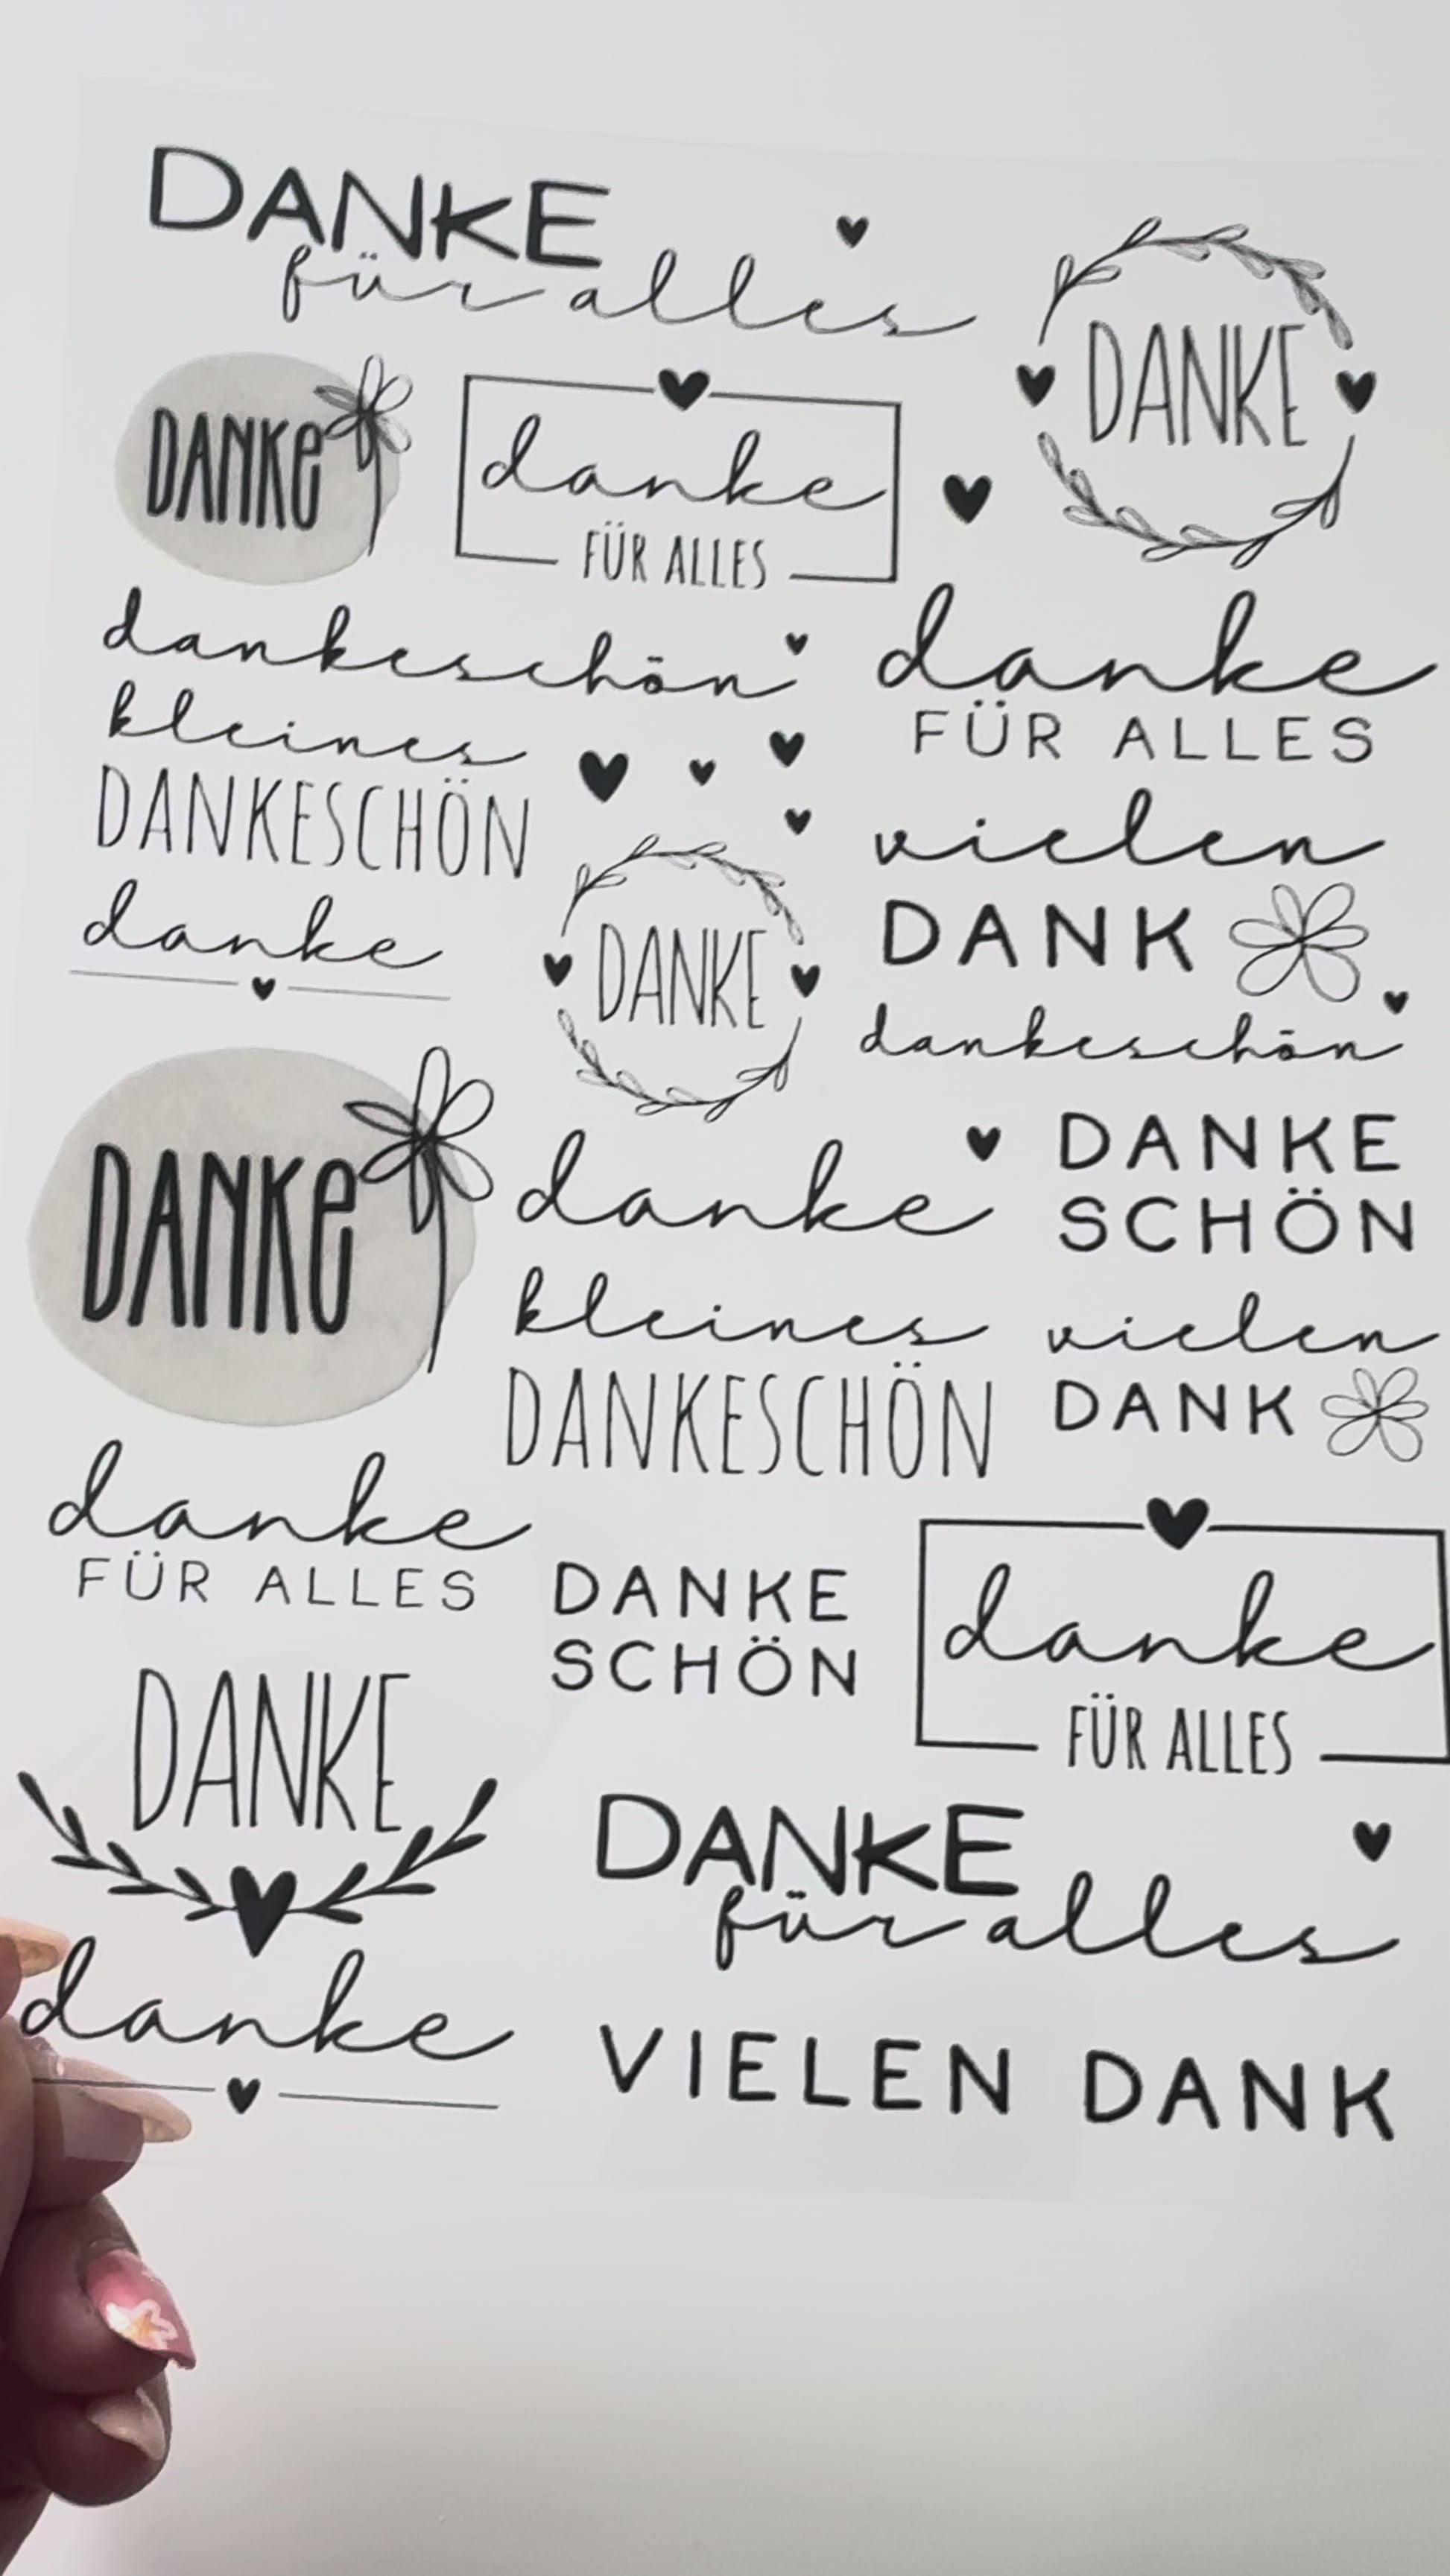 DANKE
für alles
DANKE
DANKE
danke
FÜR ALLES
dankeschön
danke
FÜR ALLES
kleines
DANKESCHÖN
vielen
DANK
danke
DANKE
dankeschön
DANKE
danke
DANKE
SCHÖN
kleines
DANKESCHÖN
vielen
DANK
danke
FÜR ALLES
DANKE
SCHÖN
danke
FÜR ALLES
DANKE
DANKE
für alles
danke
VIELEN DANK